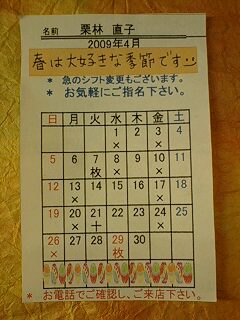 名前 栗林 直子
2009年4月
春は大好きな季節です
* 急のシフト変更もございます。
* お気軽にご指名下さい。
日 月 火 水 木 金 土
1 2 3 4
× × ×
5 6 7 8 9 10 11
枚 × × ×
12 13 14 15 16 17 18
× × ×
19 20 21 22 23 24 25
× 十 ×
26 27 28 29 30
× 枚
* お電話でご確認し、ご来店下さい。